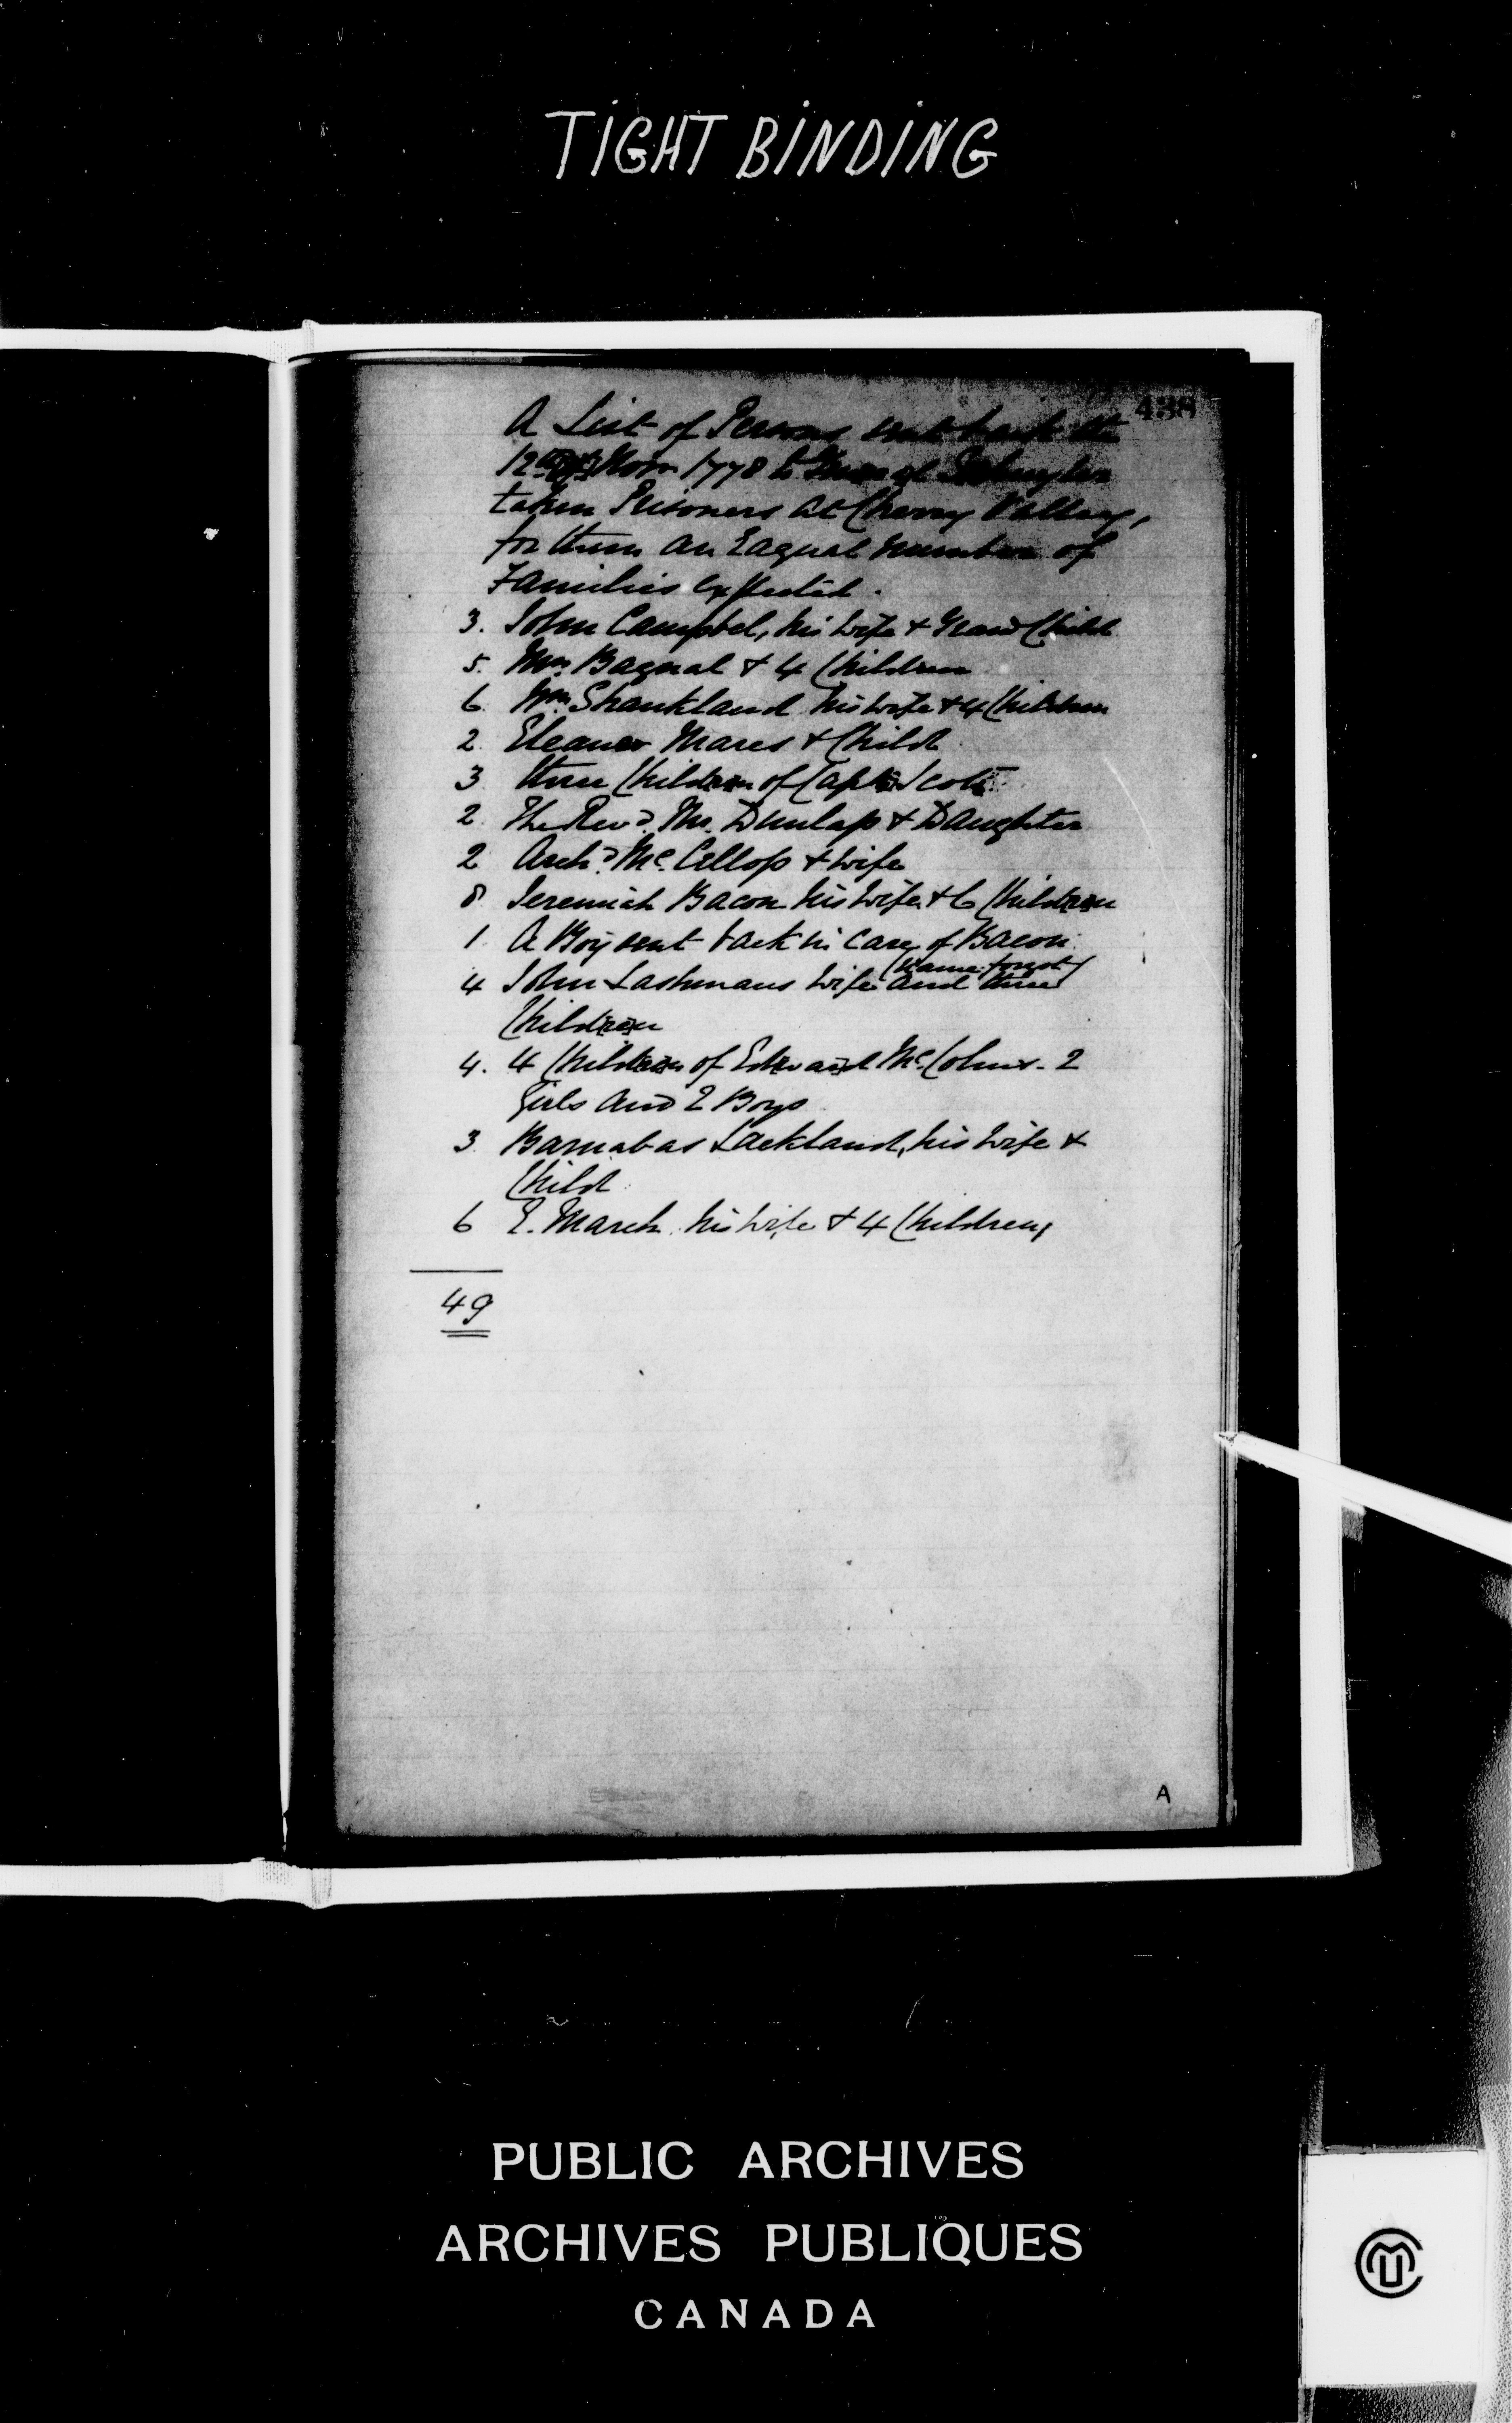 TIGHT BINDING
438
A List of Persons sent back the
12th Novr 1778 to
taken Prisoners at Cherry Valley,
for them an Eaqual number of
Families expected.
3. John Campbel, his wife & Grand Child
5. Mrs Bagnal & 4 Children
6. Wm Shankland his wife & 4 Children
2. Eleanor Mares & Child
3 three Children of Capt. Scott
2. The Revd. Mr. Dunlap & Daughter
2 Archd. Mc. Collop & wife
8 Jeremiah Bacon his wife & 6 Children
1. A Boy sent back in care of Bacon
(name forgot)
4 John Lashmans wife and three
Children
4. 4 Children of Edward Mc. - 2
Girls and 2 Boys
3 Barnabas Lackland, his wife &
Child
6 E. March his wife & 4 Children,
49
A
PUBLIC ARCHIVES
ARCHIVES PUBLIQUES
CANADA